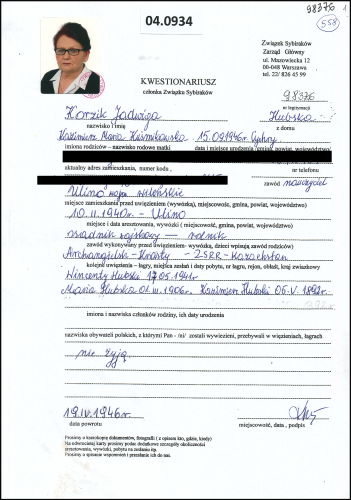 98376 1
558
04.0934
Związek Sybiraków
Zarząd Główny
ul. Mazowiecka 12
00-048 Warszawa
tel. 22/ 826 45 99
KWESTIONARIUSZ
członka Związku Sybiraków
98376
nr legitymacji
Korzik Jadwiga Hubska
nazwisko i imię z domu
Kazimierz Maria 15.09.1946r
imiona rodziców – nazwisko rodowe matki data i miejsce urodzenia, gmina, powiat, województwo
aktualny adres zamieszkania, numer kodu, nr telefonu
zawód nauczyciel
Ulino woj. wileńskie
miejsce zamieszkania przed uwięzieniem (wywózką), miejscowość, gmina, powiat, województwo)
10.II.1940r – Ulino
data i miejsce aresztowania, wywózki ( miejscowość, gmina, powiat, województwo)
osadnik wojskowy — rolnik
zawód wykonywany przed uwięzieniem - wywózką, dzieci wpisują zawód rodziców)
Archangielsk - Kwasty - ZSRR - Kazachstan
kolejni uwięzienia - łagry, miejsca zesłań i daty pobytu, nr łagru, rejon, obłast, kraj związkowy
Wincenty Hubski 17.05.1941r.
Maria Hubska 01.III.1906r. Kazimierz Hubski 05.V.1892r.
imiona i nazwiska członków rodziny, ich daty urodzenia
nazwiska obywateli polskich, z którymi Pan - /ni/ zostali wywiezieni, przebywali w więzieniach, łagrach
nie żyją
19.IV.1946r
data powrotu miejscowość, data , podpis
Prosimy o kserokopię dokumentów, fotografii ( z opisem kto, gdzie, kiedy)
Na odwrotnej karty prosimy podać dodatkowe szczegóły okoliczności
aresztowania, wywózki, pobytu na zesłaniu itp.
Prosimy o spisanie wspomnień i przesłanie ich do nas.